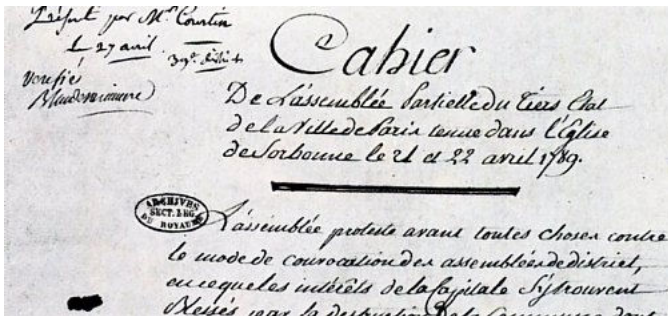 Présenté par Mr. Courtin
le 27 avril. 39e. district
Verifié
Cahier
De L'assemblée Partielle du Tiers Etat
de la Ville de Paris tenue dans l'Eglise
de Sorbonne le 21 et 22 avril 1789.
ARCHIVES
SECT. LEG.
DU ROYAUME
L'assemblée proteste avant toutes choses contre
le mode de convocation des assemblées de district,
en ce que les intérêts de la Capitale s'y trouvent
blessés par la destruction de la Commune dont